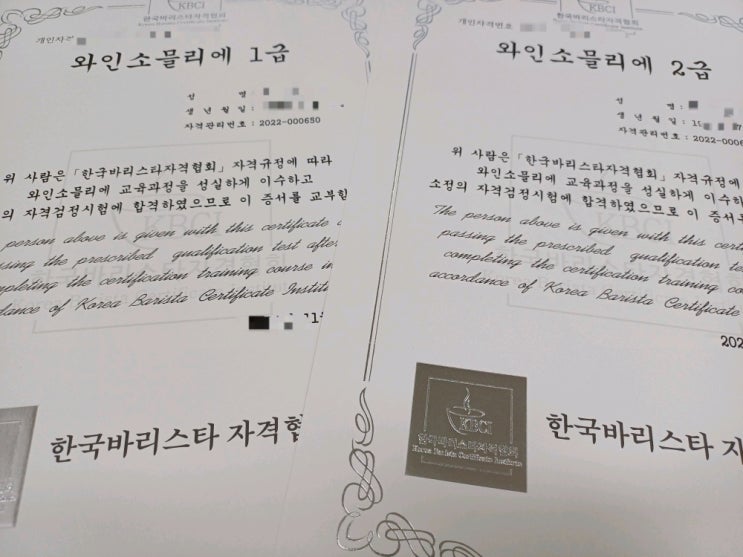 KBCI
한국바리스타자격협회
와인소믈리에 1급
성 명 :
생 년 월 일 :
자격관리번호 : 2022-000650
위 사람은 「한국바리스타자격협회」 자격규정에 따라
와인소믈리에 교육과정을 성실하게 이수하고
의 자격검정시험에 합격하였으므로 이 증서를 교부한
person above is given with this certificate
passing the prescribed qualification test after
completing the certification training course in
dance of Korea Barista Certificate Institu
한국바리스타 자격협
KBCI
개인자격번호
한국바리스타자격협회
와인소믈리에 2급
성 명 :
생 년 월 일 :
자격관리번호 : 2022-000
위 사람은 「한국바리스타자격협회」 자격규정에
와인소믈리에 교육과정을 성실하게 이수하
소정의 자격검정시험에 합격하였으므로 이 증서를
The person above is given with this cert
passing the prescribed qualification te
completing the certification training co
accordance of Korea Barista Certificate
202
KBCI
한국바리스타자격협회
Korea Barista Certificate Institute
한국바리스타 자